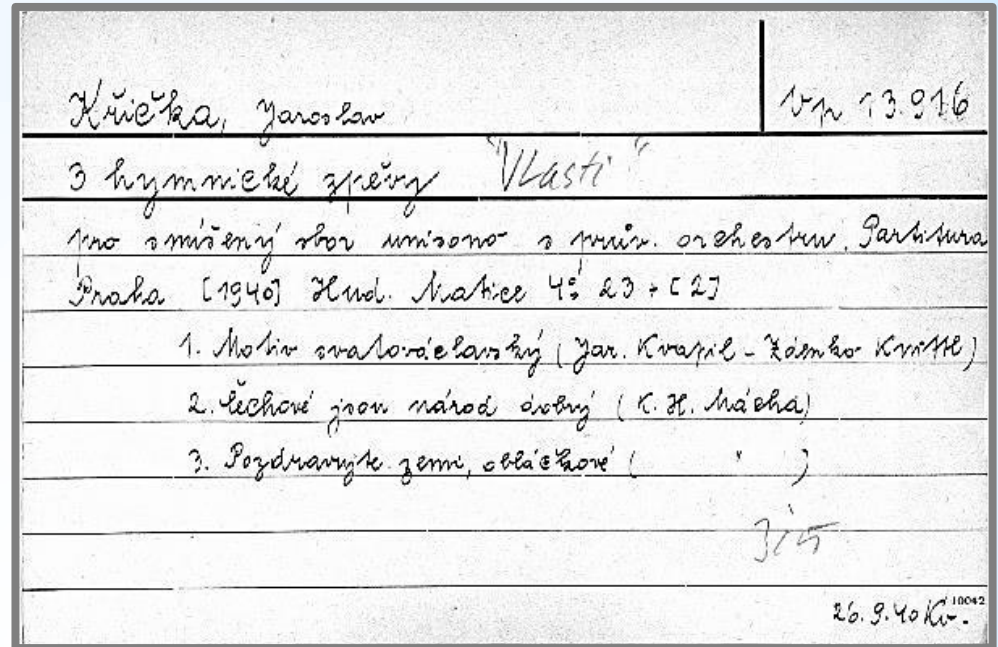 Křička, Jaroslav
Vp 13.916
3 hymnické zpěvy "Vlasti"
pro smíšený sbor unisono s prův. orchestru. Partitura
Praha [1940] Hud. Matice 4° 23 + [2]
1. Motiv svatováclavský (Jar. Kvapil - Zdenko Knittl)
2. Čechové jsou národ dobrý (K. H. Mácha)
3. Pozdravujte zemi, obláčkové ( " )
26.9.40 Kv.
10042